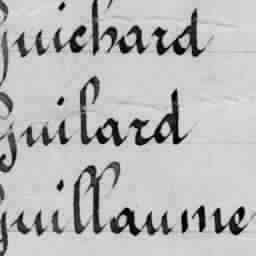 Guichard
Guilard
Guillaume